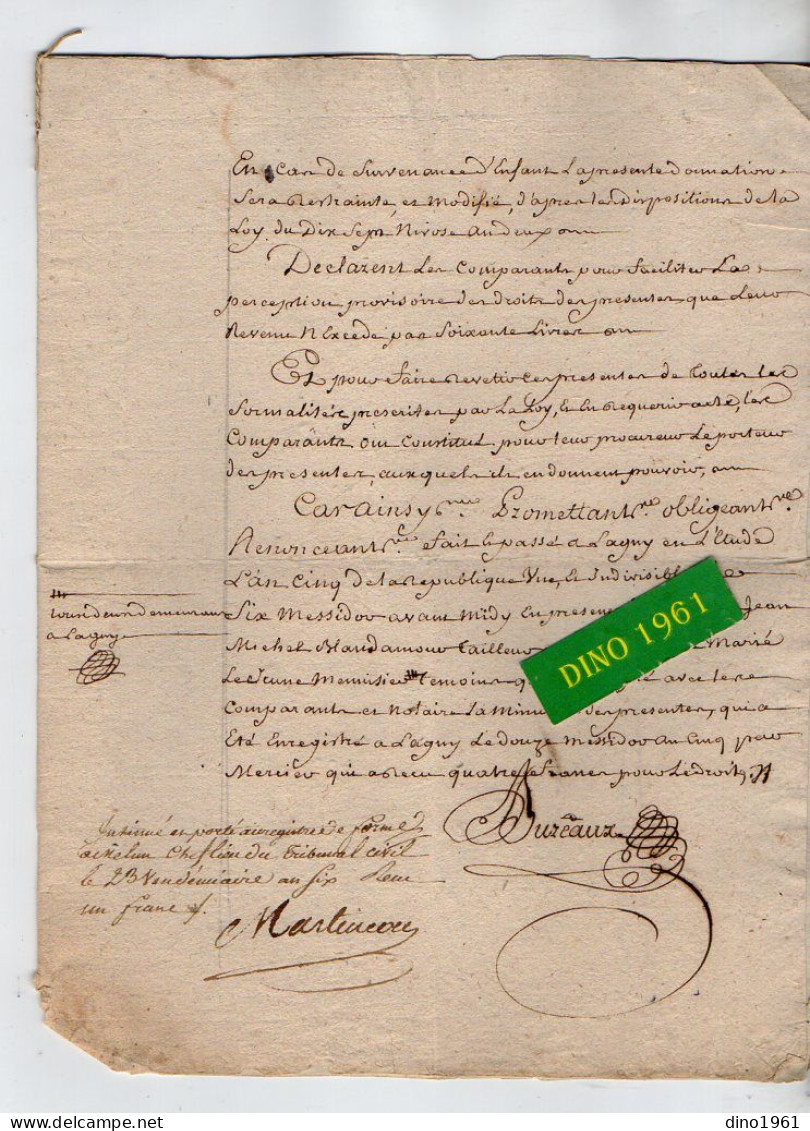 En cas de Survenance d'Enfant La presente donnation
Sera Restrainte, et Modifié, d'apres les Dispositions de la
Loy du Dix Sept Nivose an deux
Declarent Les Comparants pour faciliter La
perception provisoire des droits des presentes que Leur
Revenu N'Excede pas Soixante Livres
Et pour faire Revetir ces presentes de toutes les
formalités prescrites par La Loy, Et En Requerir acte, les
Comparants ont Constitué pour leur procureur Le porteur
des presentes, auxquels ils en donnent pouvoir,
Car ainsy Promettant obligeant
Renonceant fait et passé a Lagny en L'Etude
L'an Cinq de la Republique Une, et Indivisible Le
tous deux demeurants
a Lagny
Six Messidor avant Midy En presen Jean
Michel Blandamour Tailleur Marié
Le Jeune Menuisier temoins qu avec les
Comparants et Notaire La Minu des presentes, qui a
Eté Enregistré a Lagny Le douze Messidor an Cinq par
Mercier qui a Recu quatre francs pour Le droit
DINO 1961
Insinué et porté au registre de forme
chef lieu du Tribunal civil
le 23 Vendémiaire an six
un franc
Bureaux
dino1961